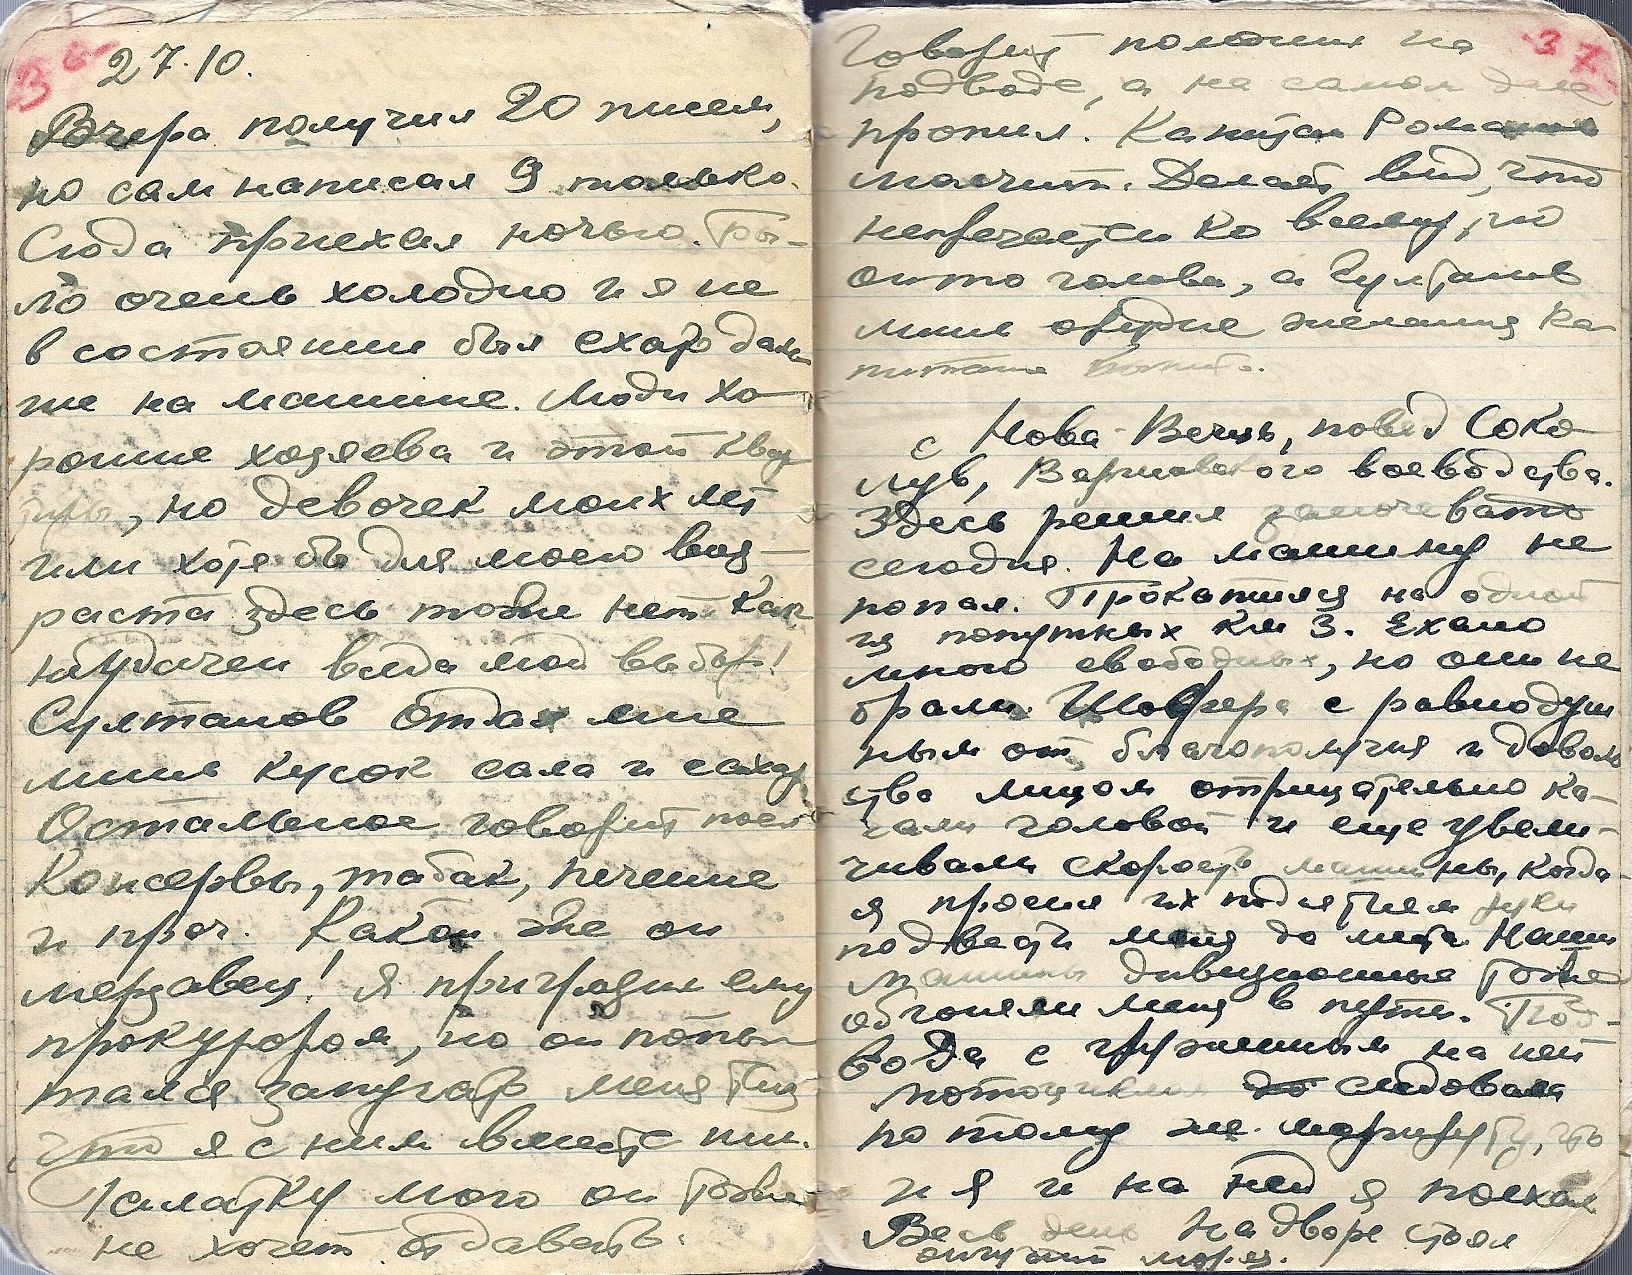 36
27.10.
Вчера получил 20 писем,
но сам написал 9 только.
Сюда приехал ночью. Бы-
ло очень холодно и я не
в состоянии был ехать даль-
ше на машине. Люди хо-
рошие хозяева и этой квар
тиры, но девочек моих лет
или хотя бы для моего воз-
раста здесь тоже нет. Как
неудачен всегда мой выбор!
Султанов отдал мне
лишь кусок сала и сахар
Остальное говорит поел
Консервы, табак, печение
и проч. Какой же он
мерзавец! Я пригрозил ему
прокурором, но он попы
тался запугать меня тем
что я с ним вместе пил.
Палатку мою он тоже
не хочет отдавать.
37
Говорит положил на
подводе, а на самом деле
пропил. Капитан Романов
молчит. Делает вид, что
непричастен ко всему, но
он то голова, а Султанов
лишь орудие желания ка-
питана
с Нова-Вечь, повяд Соко-
лув, Варшавского воеводства.
Здесь решил заночевать
сегодня. На машину не
попал. Прокатился на одной
из попутных км 3. Ехало
много свободных, но они не
брали. Шоферa с равнодуш
ным от благополучия и доволь
ства лицом отрицательно ка-
чали головой и еще увели-
чивали скорость машины, когда
я просил их поднятием руки
подвести меня до места. Наши
машины дивизионные тоже
обгоняли меня в пути. Под-
вода с груженным на ней
мотоциклом до следовала
по тому же маршруту, что
и я и на ней я поехал
Весь день на дворе стоял